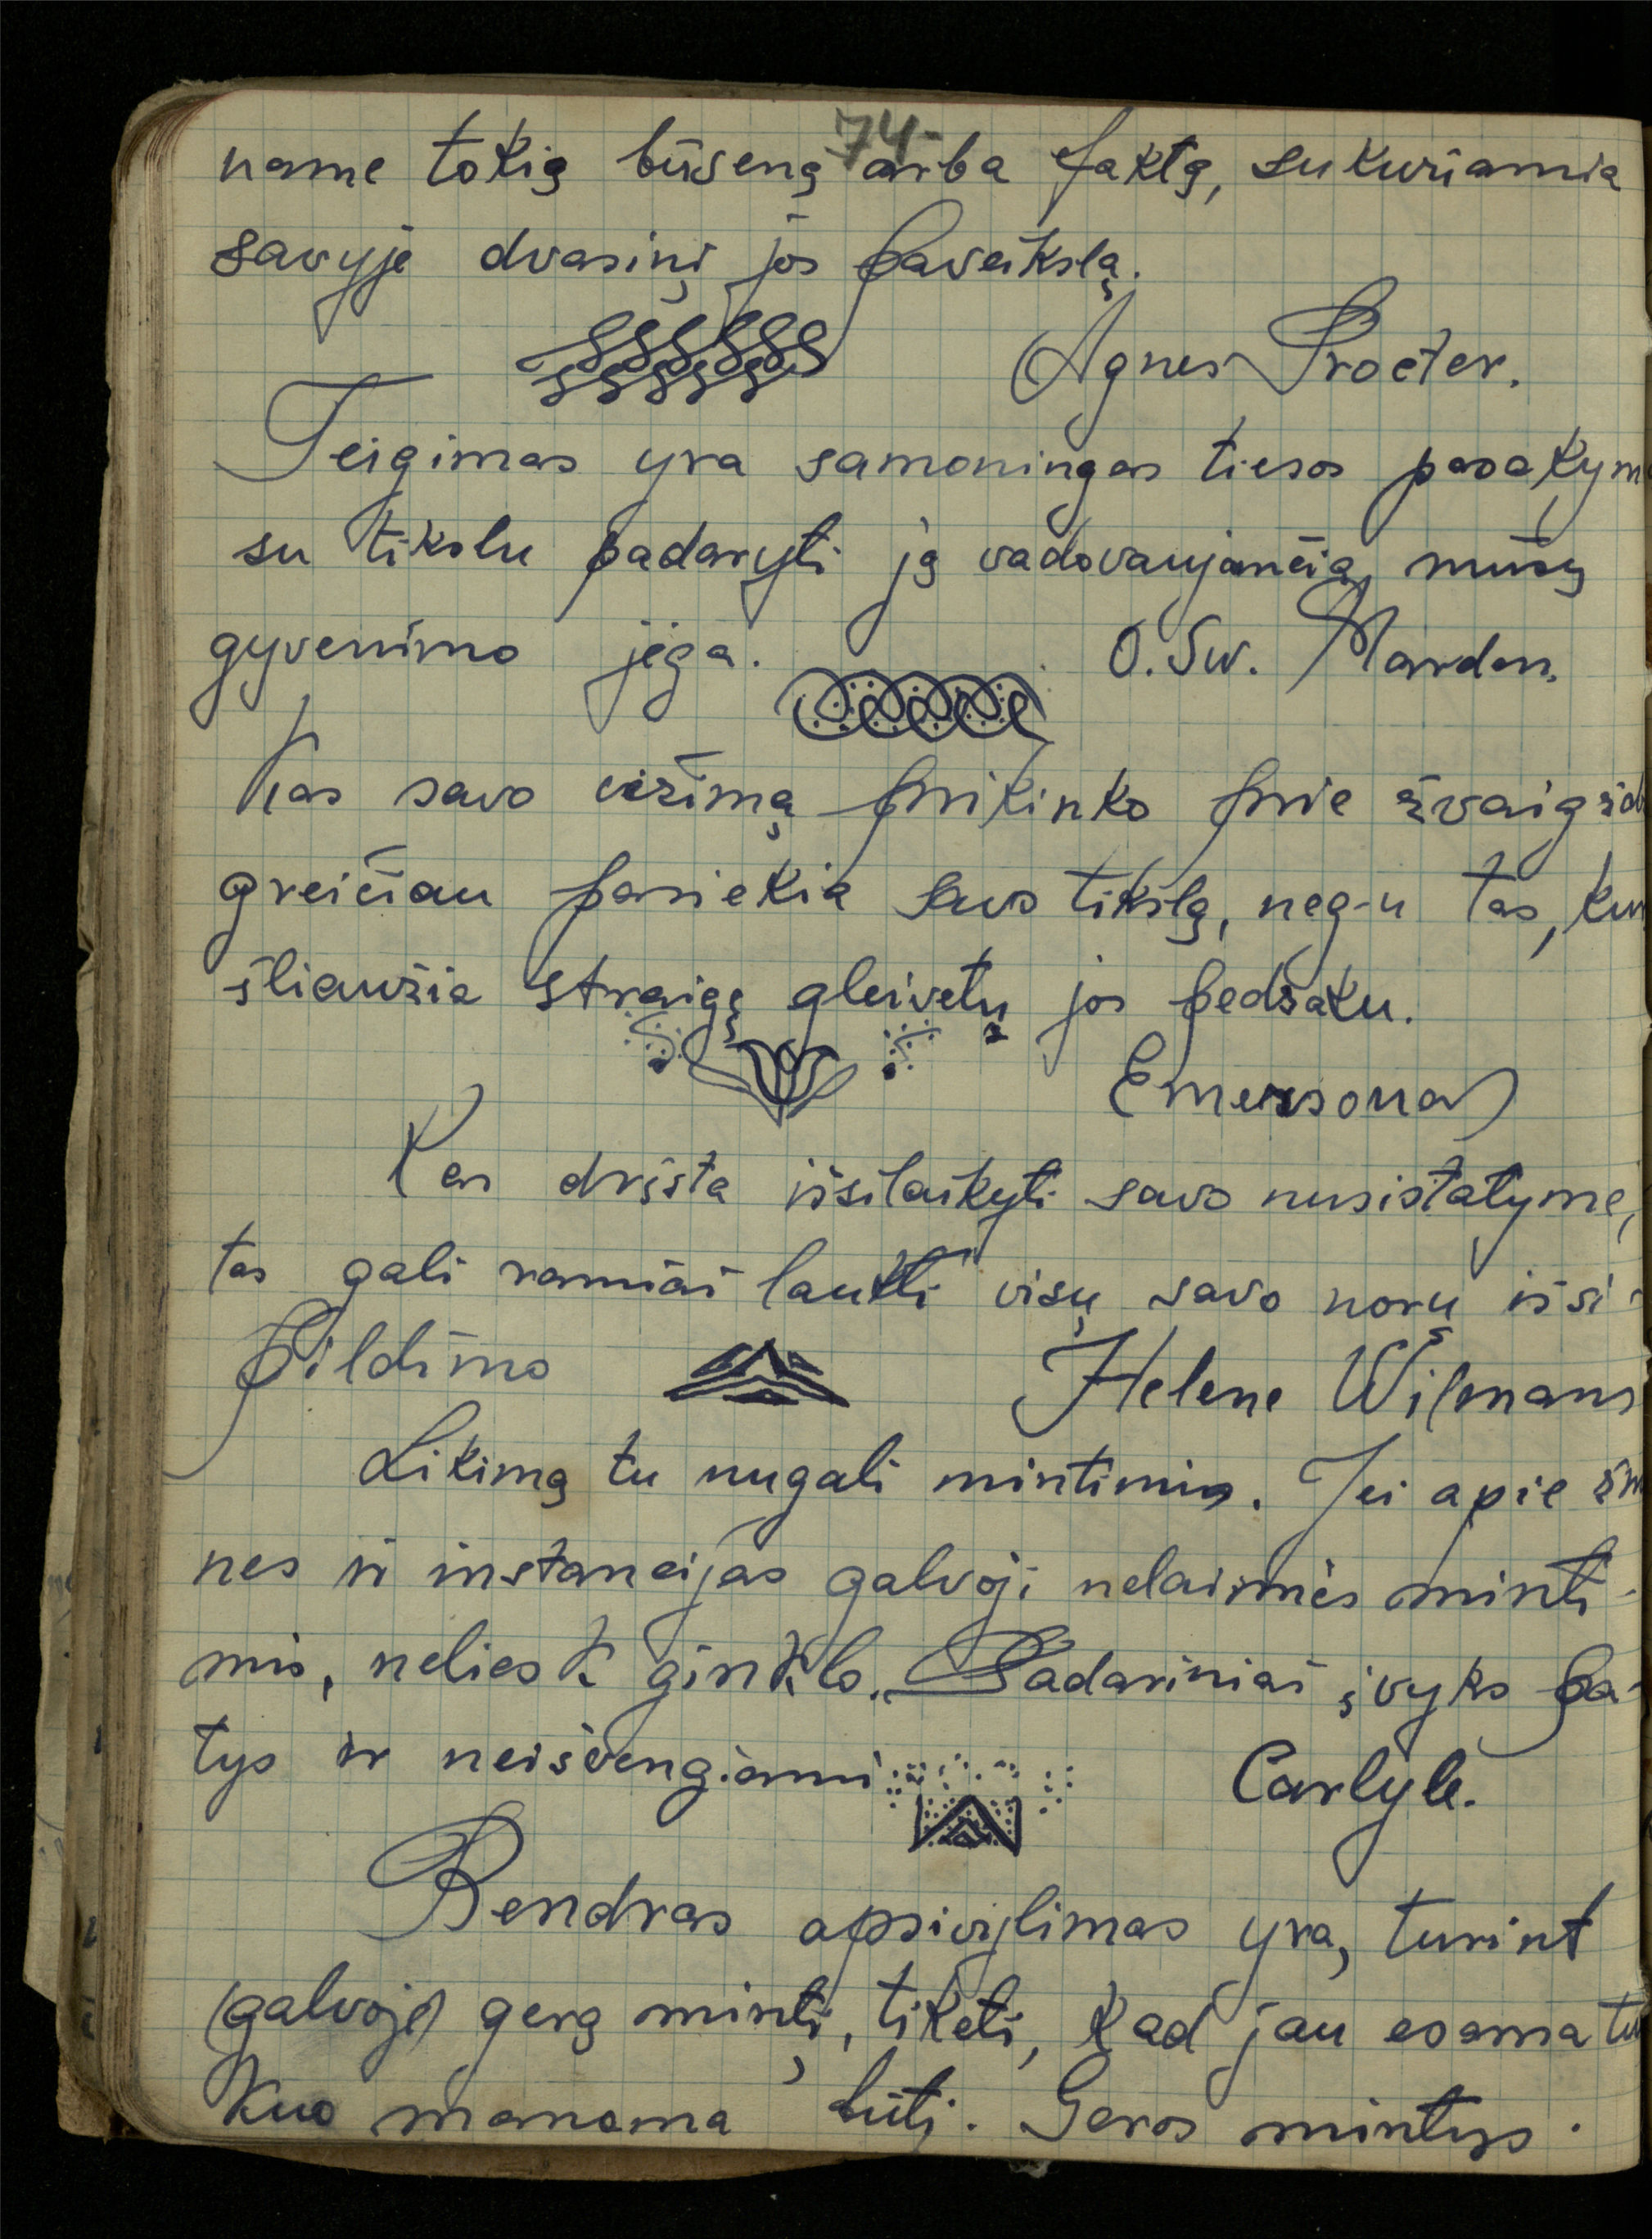 74
name tokią būseną arba faktą, sukuriama
savyje dvasinį jos paveikslą.
Agnes Procter.
Teigimas yra samoningas tiesos pasakym
su tikslu padaryti ją vadovaujančią mūsų
gyvenimo jėga.
O. Sw. Marden.
Kas savo vežimą prikinko prie žvaigžd
greičiau pasiekia savo tikslą, neg-u tas, kur
šliaužia straigę gleivetų jos pedsaku.
Emersonas
Kas drįsta išsilaikyti savo nusistatyme,
tas gali ramiai laukti visų savo norų išsi-
pildimo
Helene Wilmans
Likimą tu nugali mintimis. Jei apie žm
nes ir instancijas galvoji nelaimės minti-
mis, neliesk ginklo. Padariniai įvyks pa-
tys ir neišvengiami
Carlyle.
Bendras apsivylimas yra, turint
(galvoje) gerą mintį, tikėti, kad jau esama tu
kuo manoma būti. Geros mintys